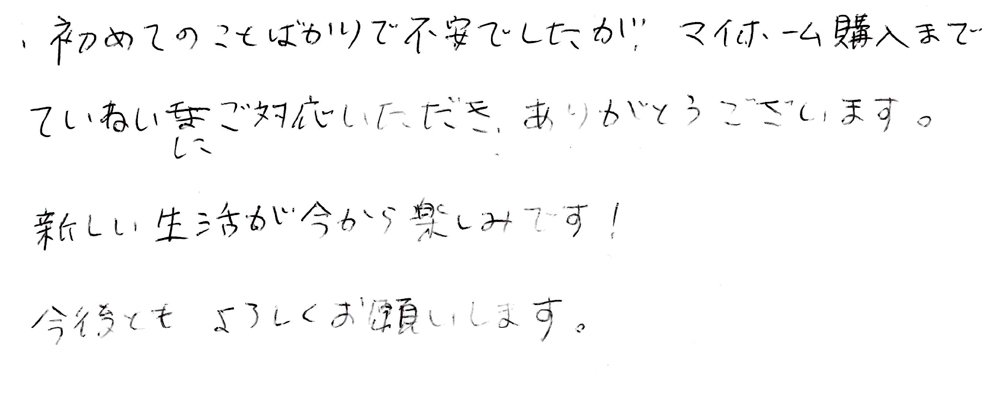 初めてのことばかりで不安でしたが、マイホーム購入まで
ていねいにご対応いただき、ありがとうございます。
新しい生活が今から楽しみです！
今後とも よろしくお願いします。